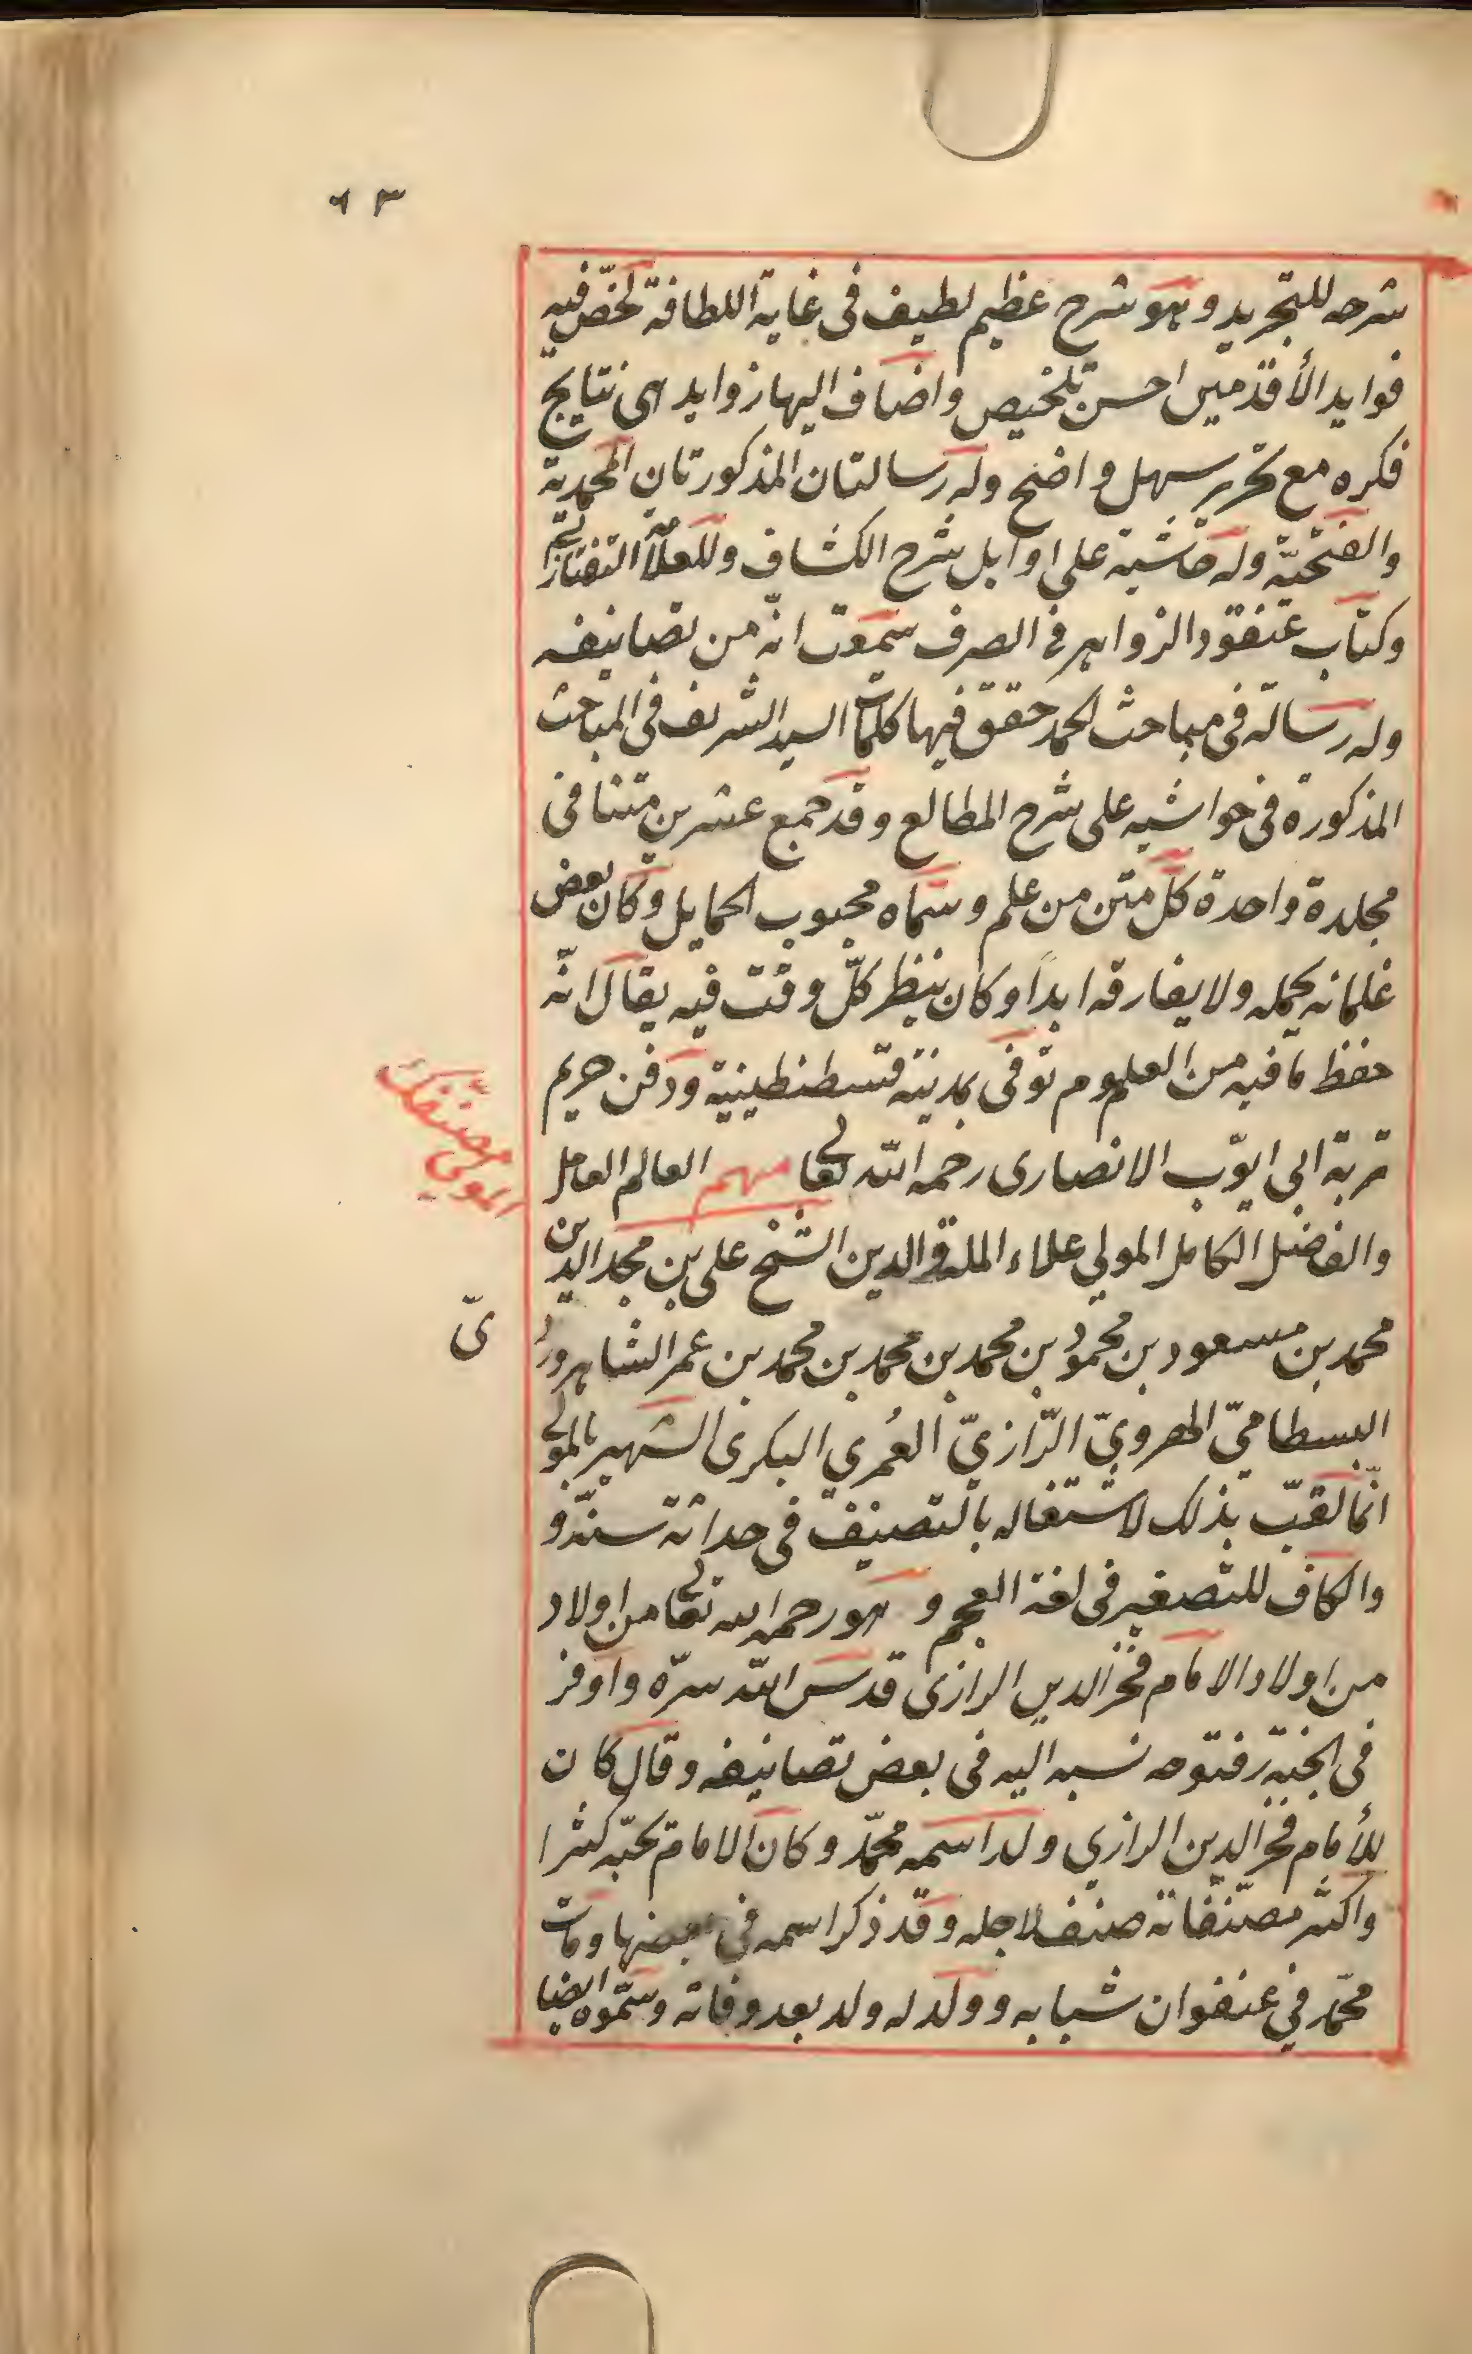 ٦٣
شرحه للتجريد وهو شرح عظيم لطيف فى غاية اللطافة لخّص فيه
فوايد الأقدمين احسن تلخيص واضاف اليها زوايد هى نتايج
فكره مع تحرير سهل واضح وله رسالتان المذكورتان المحمدية
والفتحيّة وله حاشية على اوايل شرح الكشاف وللعلّامة التفتازانى
وكتاب عنقود الزواهر فى الصرف سمعت انّه من تصانيفه
وله رسالة فى مباحث الحمد حقق فيها كلمات السيد الشريف فى المباحث
المذكورة فى حواشيه على شرح المطالع وقد جمع عشرين متنا فى
مجلدة واحدة كلّ متن من علم وسمّاه محبوب الحمايل وكان بعض
غلمانه يحمله ولا يفارقه ابداً وكان ينظر كلّ وقت فيه يقال انّه
حفظ ما فيه من العلوم توفى بمدينة قسطنطينية ودفن حريم
تربة ابى ايوّب الانصارى رحمه الله تعالى منهم العالم العامل
المولى مصنّفك
والفاضل الكامل المولي علاء الملة والدين الشيخ على بن مجد الدين
محمد بن مسعود بن محمود بن محمد بن محمد بن محمد بن عمر الشاهرود
ىّ
البسطامىّ الهروىّ الرّازىّ العُمرى البكرى الشهير بالمولى
انّما لقّب بذلك لاشتغاله بالتصنيف فى حداثة سنّه و
والكاف للتصغير فى لغة العجم و هو رحمه الله تعالى من اولاد
من اولاد الامام فخر الدين الرازى قدس الله سرّه واوفر
فى الجنّة فتوحه نسبه اليه فى بعض تصانيفه وقال كان
للأمام فخر الدين الرازي ولد اسمه محمّد وكان الامام يحبّه كثيرا
واكثر مصنّفاته صنّف لاجله وقد ذكر اسمه فى بعضها ومات
محمّد في عنفوان شبابه وولد له ولد بعد وفاته وسمّوه ايضا